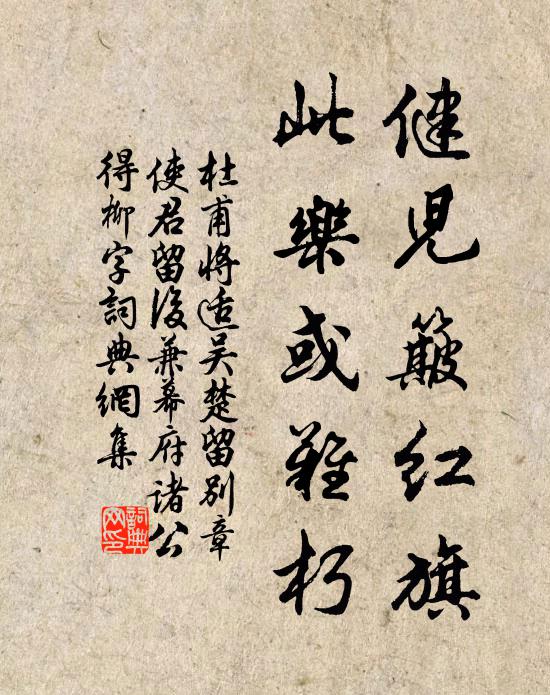 健児簸红旗
此樂或難朽
杜甫将适吴楚留别章
使君留後兼幕府諸公
得柳字詞典網集
詞典
网印